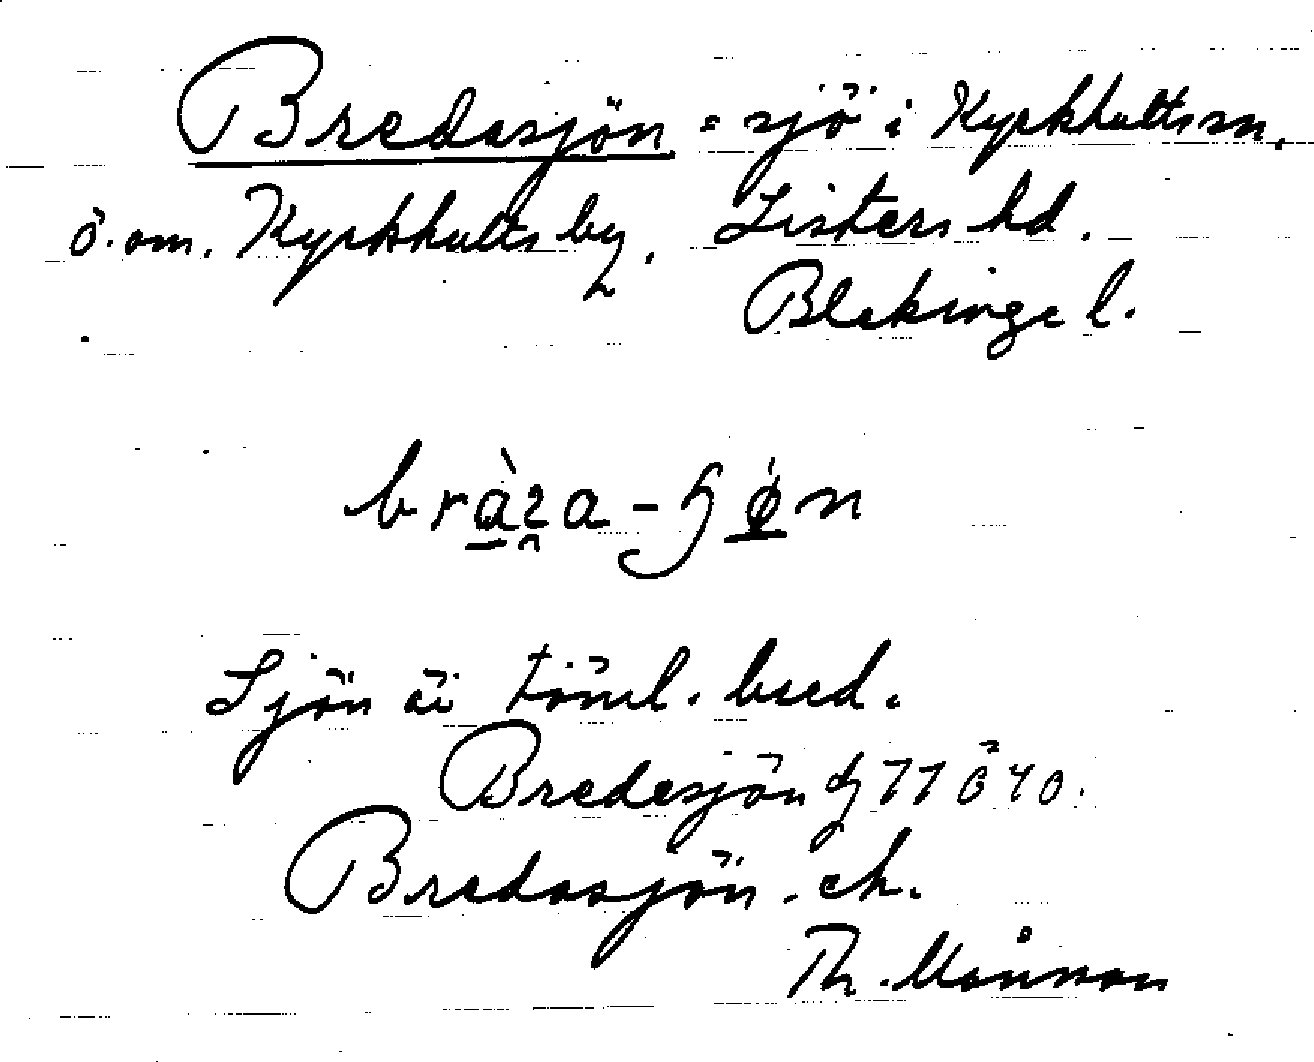 Bredasjön = sjö i Kyrkhults sn.
ö. om. Kyrkhults by. Listers hd.
Blekinge l.
Sjön är töml. bred.
Bredesjön
Bredasjön. ek.
Th. Månsson